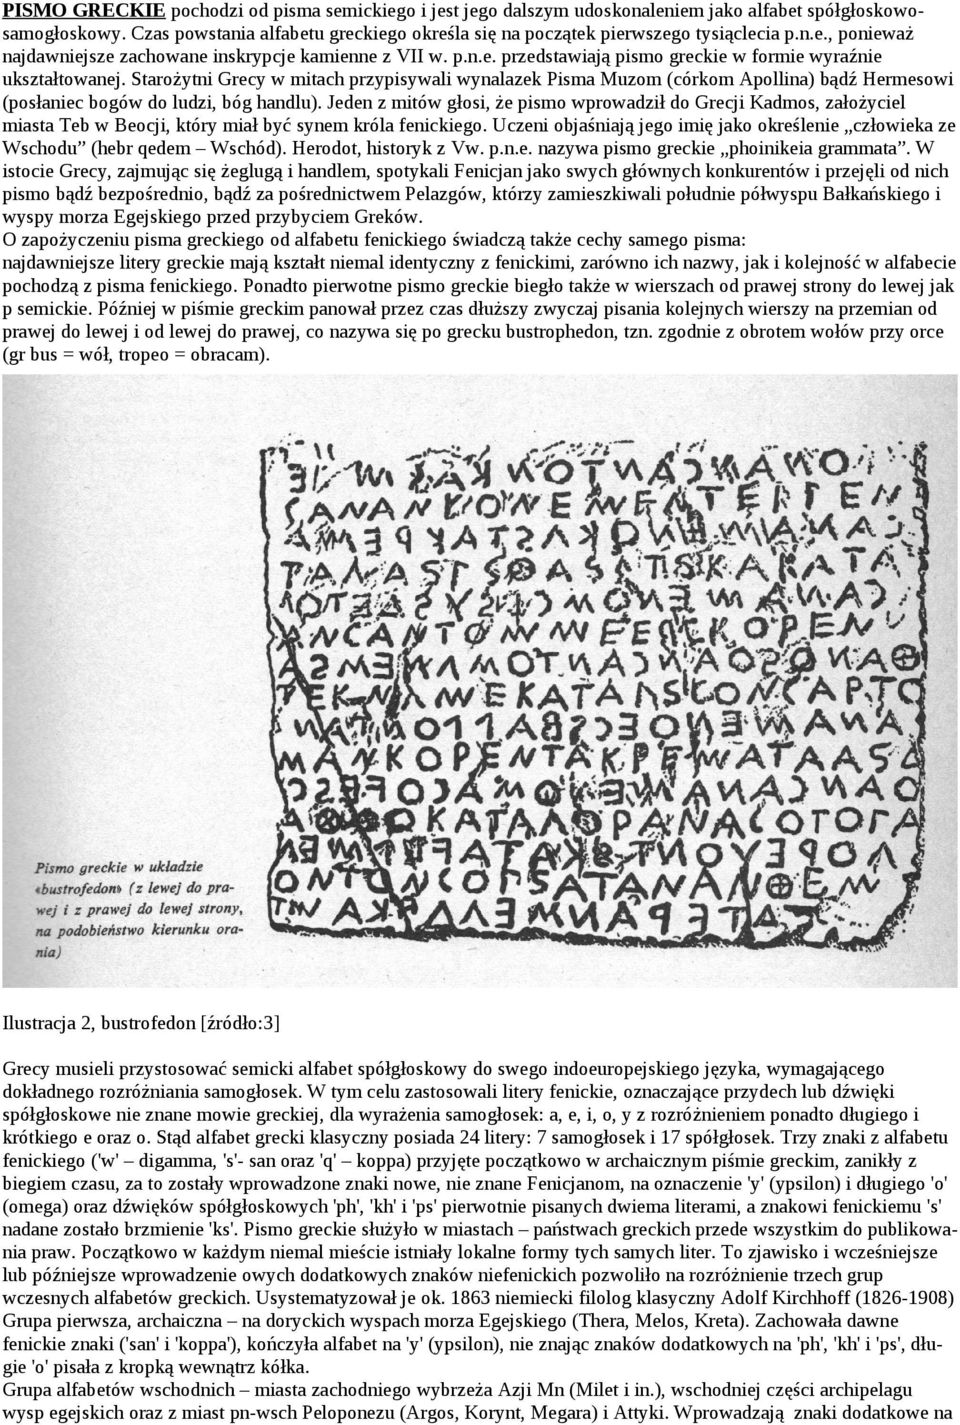 PISMO GRECKIE pochodzi od pisma semickiego i jest jego dalszym udoskonaleniem jako alfabet spółgłoskowo-
samogłoskowy. Czas powstania alfabetu greckiego określa się na początek pierwszego tysiąclecia p.n.e., ponieważ
najdawniejsze zachowane inskrypcje kamienne z VII w. p.n.e. przedstawiają pismo greckie w formie wyraźnie
ukształtowanej. Starożytni Grecy w mitach przypisywali wynalazek Pisma Muzom (córkom Apollina) bądź Hermesowi
(posłaniec bogów do ludzi, bóg handlu). Jeden z mitów głosi, że pismo wprowadził do Grecji Kadmos, założyciel
miasta Teb w Beocji, który miał być synem króla fenickiego. Uczeni objaśniają jego imię jako określenie „człowieka ze
Wschodu” (hebr qedem – Wschód). Herodot, historyk z Vw. p.n.e. nazywa pismo greckie „phoinikeia grammata”. W
istocie Grecy, zajmując się żeglugą i handlem, spotykali Fenicjan jako swych głównych konkurentów i przejęli od nich
pismo bądź bezpośrednio, bądź za pośrednictwem Pelazgów, którzy zamieszkiwali południe półwyspu Bałkańskiego i
wyspy morza Egejskiego przed przybyciem Greków.
O zapożyczeniu pisma greckiego od alfabetu fenickiego świadczą także cechy samego pisma:
najdawniejsze litery greckie mają kształt niemal identyczny z fenickimi, zarówno ich nazwy, jak i kolejność w alfabecie
pochodzą z pisma fenickiego. Ponadto pierwotne pismo greckie biegło także w wierszach od prawej strony do lewej jak
p semickie. Później w piśmie greckim panował przez czas dłuższy zwyczaj pisania kolejnych wierszy na przemian od
prawej do lewej i od lewej do prawej, co nazywa się po grecku bustrophedon, tzn. zgodnie z obrotem wołów przy orce
(gr bus = wół, tropeo = obracam).
Pismo greckie w układzie
«bustrofedon» (z lewej do pra-
wej i z prawej do lewej strony,
na podobieństwo kierunku ora-
nia)
Ilustracja 2, bustrofedon [źródło:3]
Grecy musieli przystosować semicki alfabet spółgłoskowy do swego indoeuropejskiego języka, wymagającego
dokładnego rozróżniania samogłosek. W tym celu zastosowali litery fenickie, oznaczające przydech lub dźwięki
spółgłoskowe nie znane mowie greckiej, dla wyrażenia samogłosek: a, e, i, o, y z rozróżnieniem ponadto długiego i
krótkiego e oraz o. Stąd alfabet grecki klasyczny posiada 24 litery: 7 samogłosek i 17 spółgłosek. Trzy znaki z alfabetu
fenickiego ('w' – digamma, 's'- san oraz 'q' – koppa) przyjęte początkowo w archaicznym piśmie greckim, zanikły z
biegiem czasu, za to zostały wprowadzone znaki nowe, nie znane Fenicjanom, na oznaczenie 'y' (ypsilon) i długiego 'o'
(omega) oraz dźwięków spółgłoskowych 'ph', 'kh' i 'ps' pierwotnie pisanych dwiema literami, a znakowi fenickiemu 's'
nadane zostało brzmienie 'ks'. Pismo greckie służyło w miastach – państwach greckich przede wszystkim do publikowa-
nia praw. Początkowo w każdym niemal mieście istniały lokalne formy tych samych liter. To zjawisko i wcześniejsze
lub późniejsze wprowadzenie owych dodatkowych znaków niefenickich pozwoliło na rozróżnienie trzech grup
wczesnych alfabetów greckich. Usystematyzował je ok. 1863 niemiecki filolog klasyczny Adolf Kirchhoff (1826-1908)
Grupa pierwsza, archaiczna – na doryckich wyspach morza Egejskiego (Thera, Melos, Kreta). Zachowała dawne
fenickie znaki ('san' i 'koppa'), kończyła alfabet na 'y' (ypsilon), nie znając znaków dodatkowych na 'ph', 'kh' i 'ps', dłu-
gie 'o' pisała z kropką wewnątrz kółka.
Grupa alfabetów wschodnich – miasta zachodniego wybrzeża Azji Mn (Milet i in.), wschodniej części archipelagu
wysp egejskich oraz z miast pn-wsch Peloponezu (Argos, Korynt, Megara) i Attyki. Wprowadzają znaki dodatkowe na